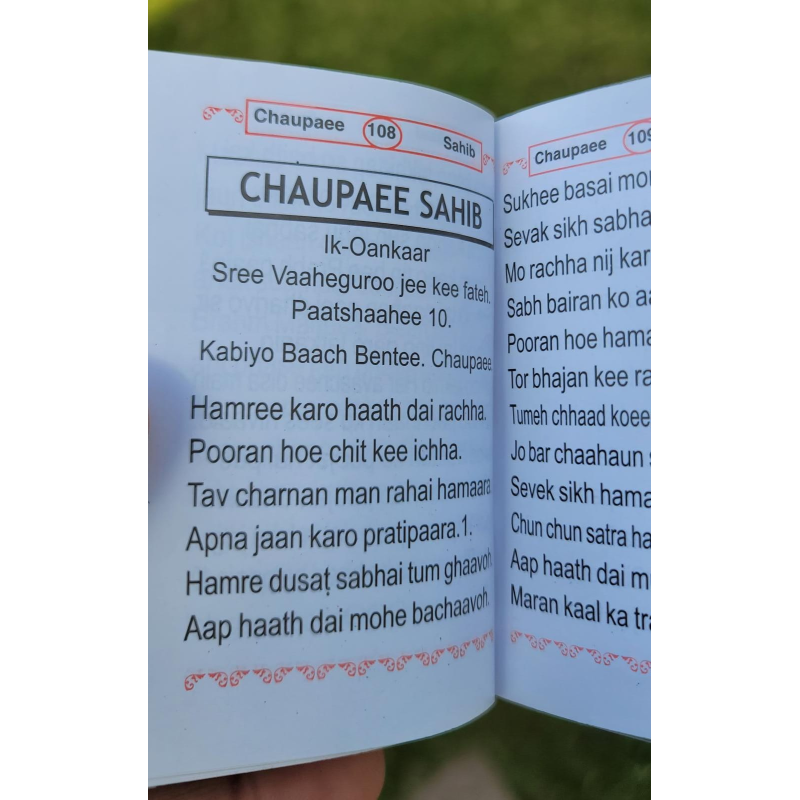 Chaupaee 108 Sahib
CHAUPAEE SAHIB
Ik-Oankaar
Sree Vaaheguroo jee kee fateh.
Paatshaahee 10.
Kabiyo Baach Bentee. Chaupaee.
Hamree karo haath dai rachha.
Pooran hoe chit kee ichha.
Tav charnan man rahai hamaara.
Apna jaan karo pratipaara.1.
Hamre dusaṭ sabhai tum ghaavoh.
Aap haath dai mohe bachaavoh.
Chaupaee 109
Sukhee basai
Sevak sikh
Mo rachha nij
Sabh bairan ko
Pooran hoe
Tor bhajan kee
Tumeh chhaad koee
Jo bar chaahaun
Sevek sikh
Chun chun satra
Aap haath dai
Maran kaal ka